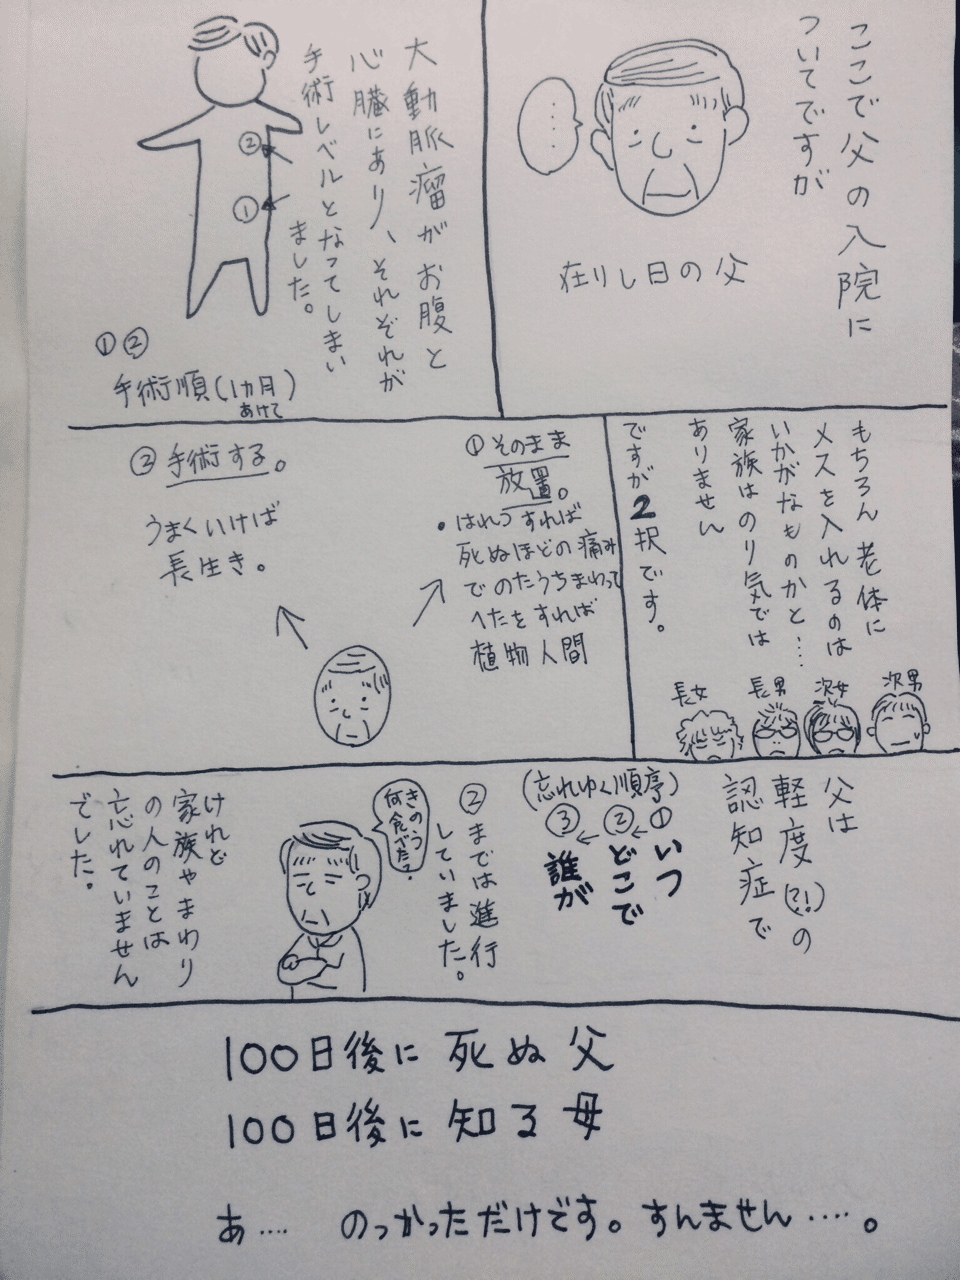 ここで父の入院に
ついてですが
……
在りし日の父
大動脈瘤がお腹と
心臓にあり、それぞれが
手術レベルとなってしまい
ました。
②
①
①②
手術順(1カ月)
あけて
もちろん老体に
メスを入れるのは
いかがなものかと…‥
家族はのり気では
ありません
ですが2択です。
長女
長男
次女
次男
①そのまま
放置。
・はれつすれば
死ぬほどの痛み
でのたうちまわって
へたをすれば
植物人間
②手術する。
うまくいけば
長生き。
父は
軽度(?!)の
認知症で
(忘れゆく順序)
①いつ
②どこで
③誰が
②までは進行
していました。
きのう
何食べた?
けれど
家族やまわり
の人のことは
忘れていません
でした。
100日後に死ぬ父
100日後に知る母
あ…‥ のっかっただけです。すんません…‥。